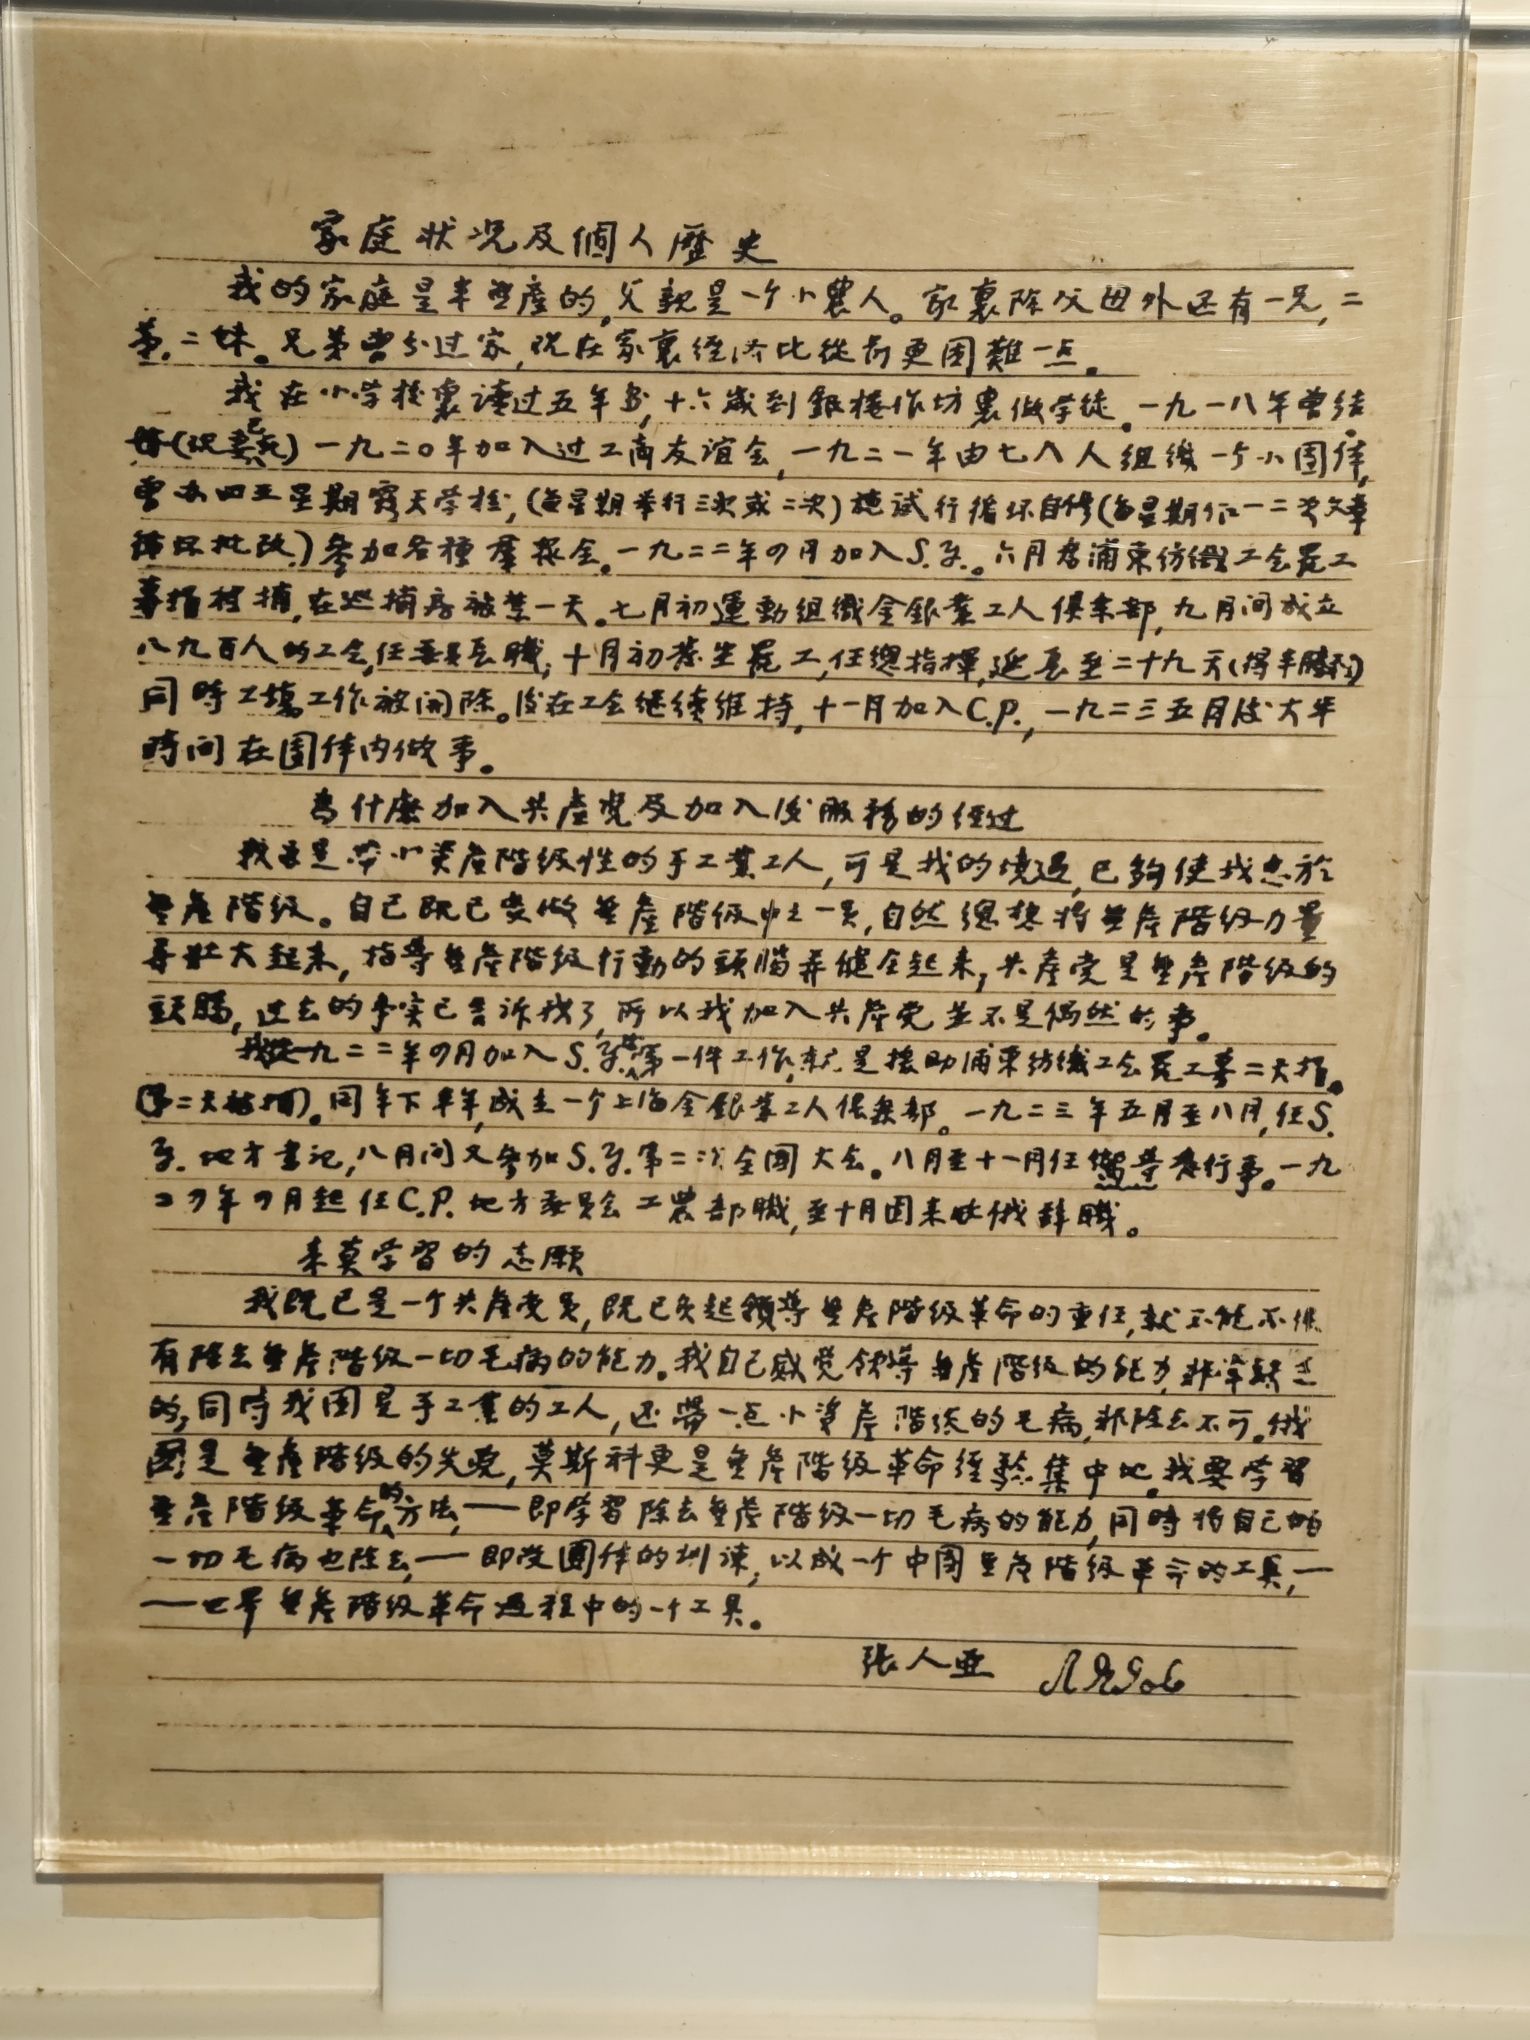 家庭状况及個人歷史
我的家庭是半無產的,父親是一个小農人。家裏除父母外还有一兄,二
弟,二妹。兄弟曾分过家,现在家裏經济比從前更困難一点。
我在小学校裏讀过五年书,十六歲到銀樓作坊裏做学徒。一九一八年曾结
婚(现妻已死)一九二〇年加入过工商友谊会,一九二一年由七八人組織一个小团体,
曾办四五星期露天学校,(每星期举行三次或二次)試行循环自修(每星期作一二次文章
循环批改)参加各種羣衆会。一九二二年四月加入S.Y.。六月君浦東纺織工会罷工
募捐被捕,在巡捕房被禁一天。七月初運動組織金銀業工人俱楽部,九月间成立
八九百人的工会,任委員長職,十月初發生罷工,任總指揮,延長至二十九天(得半勝利)
同時工塲工作被闹除。後在工会继续维持,十一月加入C.P.,一九二三五月後大半
時间在团体内做事。
為什麽加入共產党及加入後服務的经过
我虽是带小資產階级性的手工業工人,可是我的境遇,已夠使我忠於
無產階级。自己既已变做無產階级中之一員,自然總想将無產階级力量
弄壯大起来,指導無產階级行動的頭腦弄健全起来,共產党是無產階级的
頭腦,过去的事实已告诉我了,所以我加入共產党並不是偶然的事。
我一九二二年四月加入S.Y.其第一件工作,就是援助浦東纺織工会罷工募二天捐。
(第二天被捕)。同年下半年,成立一个上海金銀業工人俱樂部。一九二三年五月至八月,任S.
Y.地方書记,八月间又参加S.Y.第二次全国大会。八月至十一月任發行事。一九
二四年四月起任C.P.地方委員会工農部職,至十月因来俄辞職。
来莫学習的志願
我既已是一个共產党員,既已负起領導無產階级革命的重任,就不能不俱
有除去無產階级一切毛病的能力。我自己感觉领導無產階级的能力,非常缺乏
的,同時我因是手工業的工人,还带一点小資產階级的毛病,非除去不可。俄
國是無產階级的先党,莫斯科更是無產階级革命經驗集中地。我要学習
無產階级革命的方法,——即学習除去無產階级一切毛病的能力,同時将自己的
一切毛病也除去,——即受團体的训谏,以成一个中国無產階级革命的工具,—
——世界無產階级革命過程中的一个工具。
张人亚